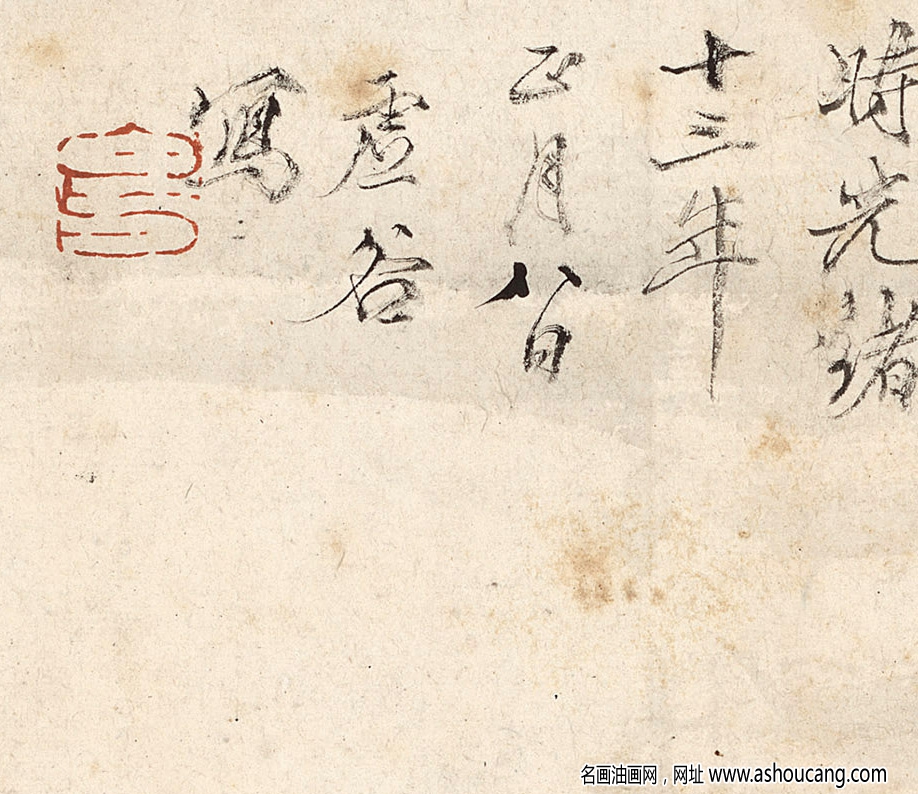 時光緒
十三年
正月八日
虛谷
寫
名画油画网，网址 www.ashoucang.com